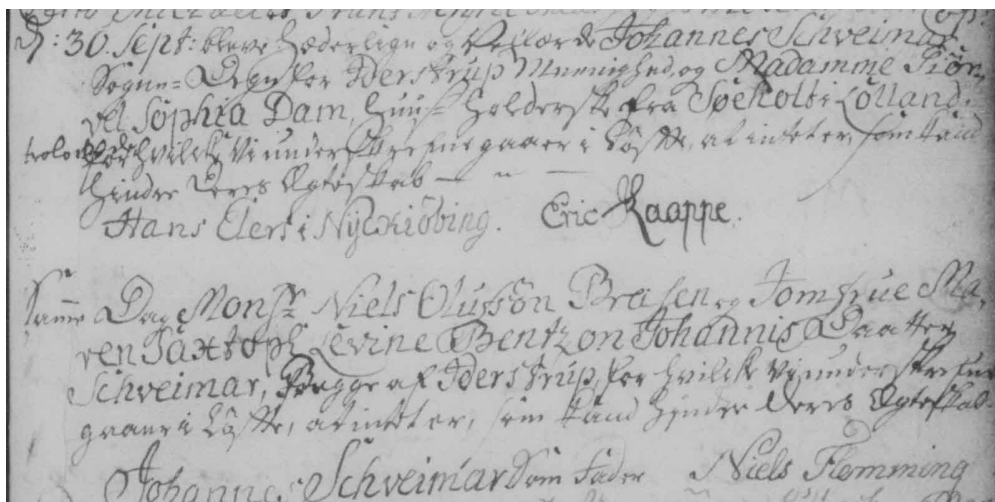 D: 30. Sept: bleve Hæderlige og Vellærde Johannes Schveimar
Sogne-Degn for Iderstrup Meenighed, og Madamme Siør-
vel Sophia Dam, Huus-Holderske fra Søeholt i Lolland.
for hvilcke vi underskrefne gaaer i Løfte, at intet er, som kand
hindre deres Ægteskab
Hans Elers i Nyckiöbing. Eric Kaappe.
Samme Dag Monsr Niels Olufsøn Brasen og Jomfrue Ma-
ren Saxtoph Levine Bentzon Johannis Daatter
Schveimar, begge af Iderstrup, for hvilcke vi underskrefne
gaaer i Løfte, at intet er, som kand hindre deres Ægteskab
Johannes Schveimar som Fader Niels Flemming